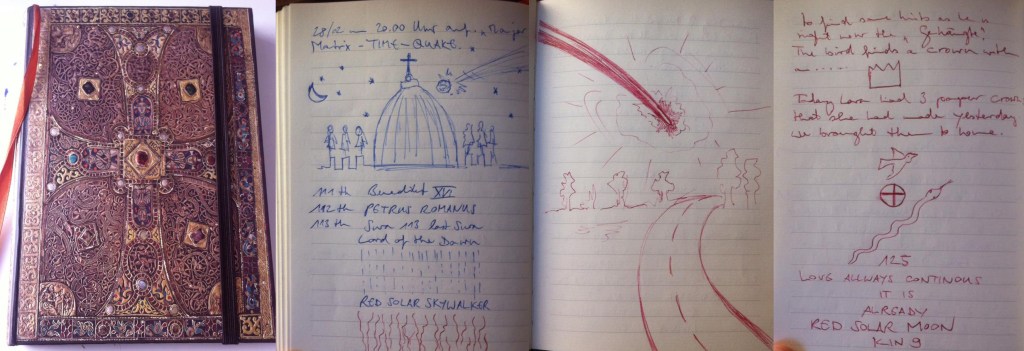 28/12 — 20.00 Uhr auf
Matrix - TIME - QUAKE.
111th Benedikt XVI
112th PETRUS ROMANUS
113th Sun 113 last Sun
Lord of the Dawn
RED SOLAR SKYWALKER
to find some hints as he is
right now the
The bird finds a crown with
a.....
Today Lara had 3 paper crowns
that she had made yesterday
we brought them to home.
125
LOVE ALLWAYS CONTINOUS
IT IS
ALREADY
RED SOLAR MOON
KIN 9